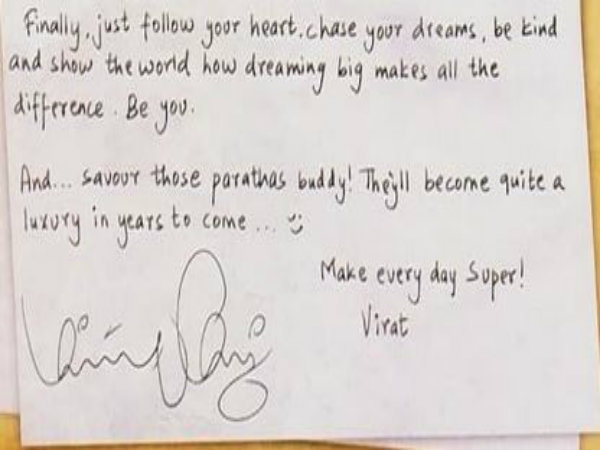 Finally, just follow your heart, chase your dreams, be kind
and show the world how dreaming big makes all the
difference. Be you.
And... savour those parathas buddy! They'll become quite a
luxury in years to come ... :)
Make every day Super!
Virat